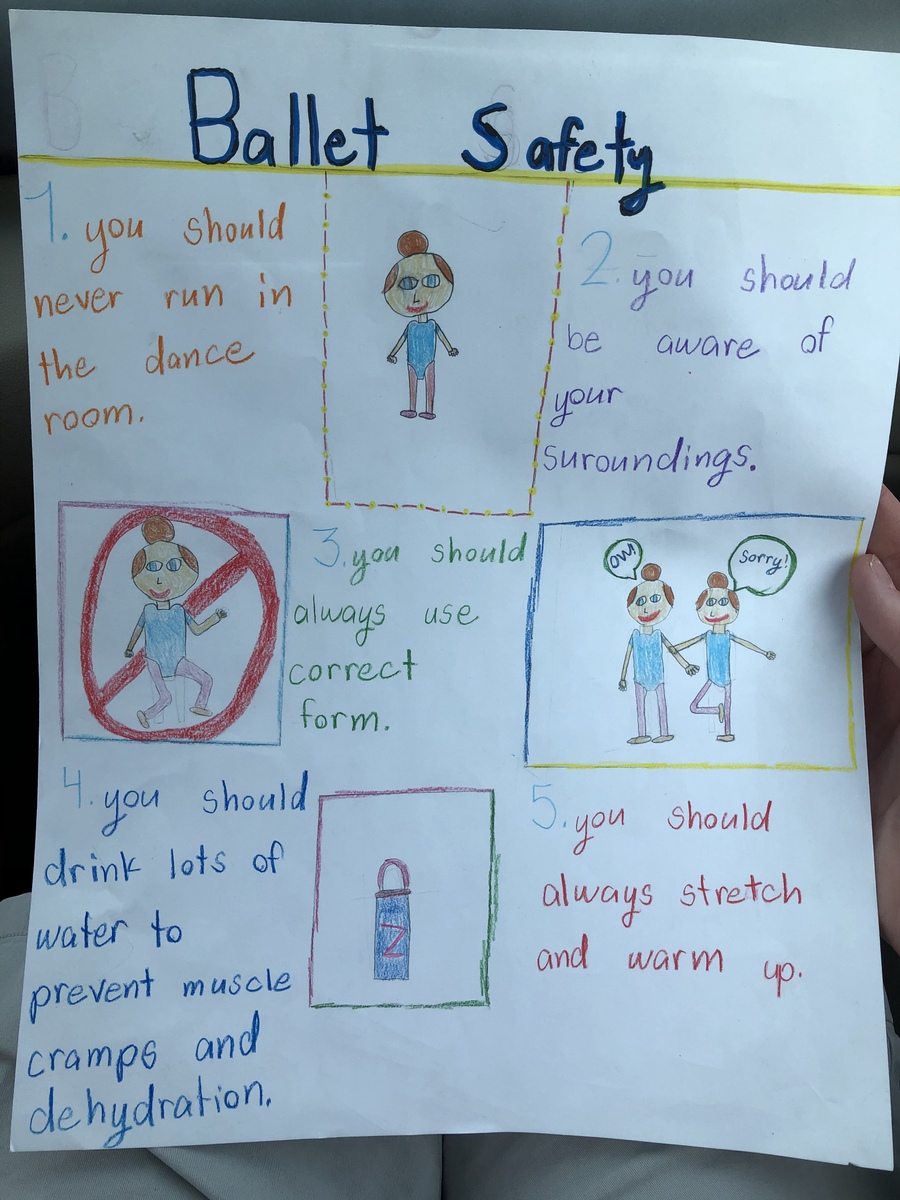 Ballet Safety
1. you should
never run in
the dance
room.
2. you should
be aware of
your
suroundings.
3. you should
always use
correct
form.
OW!
Sorry!
4. you should
drink lots of
water to
prevent muscle
cramps and
dehydration.
5. you should
always stretch
and warm up.